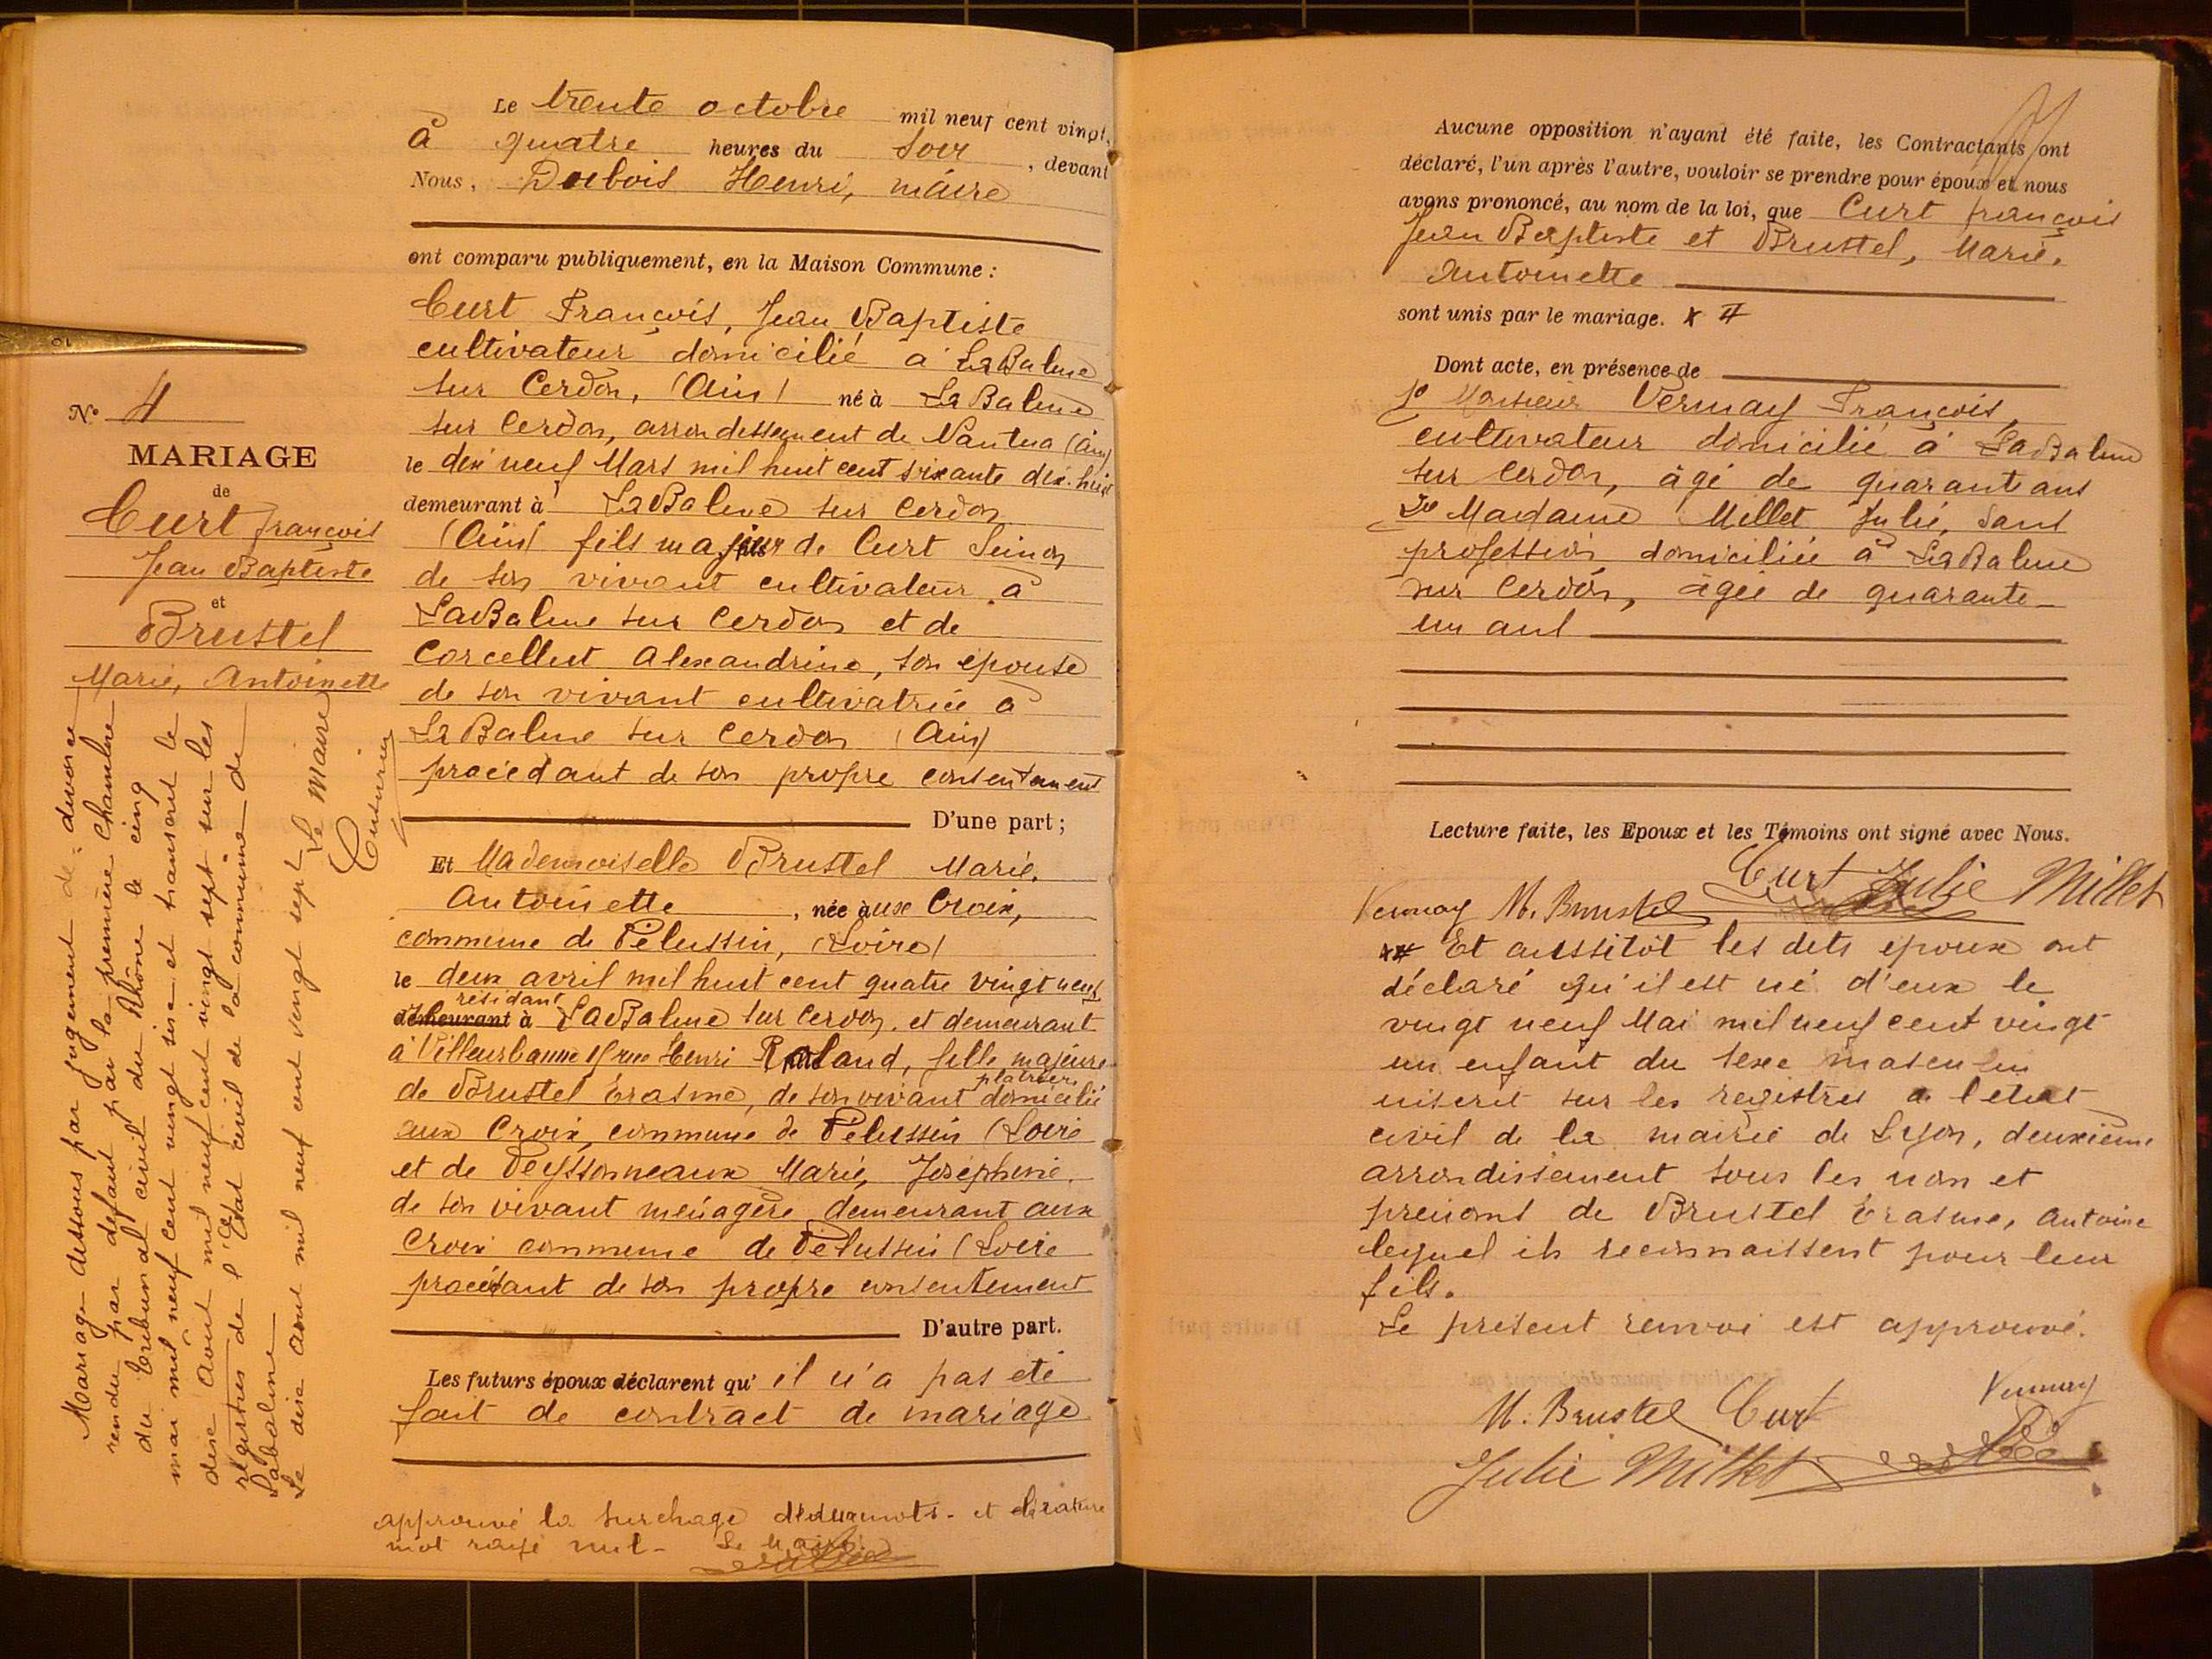 N° 4
MARIAGE
de
Curt françois
Jean Baptiste
et
Brustel
Marie, Antoinette
Mariage dessous par jugement de divorce
rendu par défaut par la première Chambre
du tribunal civil du Rhône le cinq
mai mil neuf cent vingt six et transcrit le
dix Août mil neuf cent vingt sept sur les
registres de l'Etat civil de la commune de
Labalme
Le dix Aout mil neuf cent vingt sept
Le Maire
Le trente octobre mil neuf cent vingt,
à quatre heures du soir, devant
Nous, Dubois Henri, maire
ont comparu publiquement, en la Maison Commune :
Curt François, Jean Baptiste
cultivateur domicilié à LaBalme
sur Cerdon, (Ain) né à LaBalme
sur Cerdon, arrondissement de Nantua (Ain)
le dix neuf Mars mil huit cent soixante dix-huit
demeurant à LaBalme sur Cerdon
(Ain) fils majeur de Curt Simon
de son vivant cultivateur à
LaBalme sur Cerdon et de
Corcellut Alexandrine, son épouse
de son vivant cultivatrice à
LaBalme sur Cerdon (Ain)
procédant de son propre consentement
D'une part ;
Et Mademoiselle Brustel Marie,
Antoinette, née aux Croix,
commune de Pélussin, (Loire)
le deux avril mil huit cent quatre vingt neuf
résidant
demeurant à LaBalme sur Cerdon, et demeurant
à Villeurbanne rue Henri Rolland, fille majeure
platrier
de Brustel Érasme, de son vivant domicilié
aux Croix, commune de Pélussin (Loire
et de Veyssonneaux Marie, Joséphine,
de son vivant ménagère demeurant aux
Croix commune de Pélussin (Loire
procédant de son propre consentement
D'autre part.
Les futurs époux déclarent qu'il n'a pas été
fait de contract de mariage
approuvé la surchage de deux mots - et la rature
mot rayé nul - Le Maire
Aucune opposition n'ayant été faite, les Contractants ont
déclaré, l'un après l'autre, vouloir se prendre pour époux et nous
avons prononcé, au nom de la loi, que Curt françois
Jean Baptiste et Brustel, Marie,
Antoinette
sont unis par le mariage. * #
Dont acte, en présence de
1° Monsieur Vernay François,
cultivateur domicilié à LaBalme
sur Cerdon, âgé de quarante ans
2° Madame Millet Julie, sans
profession, domiciliée à LaBalme
sur Cerdon, âgée de quarante-
un ans
Lecture faite, les Epoux et les Témoins ont signé avec Nous.
Curt Julie Millet
Vernay M. Brustel
*# Et aussitôt les dits époux ont
déclaré qu'il est né d'eux le
vingt neuf Mai mil neuf cent vingt
un enfant du sexe masculin
inscrit sur les registres a l'etat
civil de la mairie de Lyon, deuxième
arrondissement sous les nom et
prenoms de Brustel Érasme, Antoine
lequel ils reconnaissent pour leur
fils.
Le présent renvoi est approuvé.
M. Brustel Curt Vernay
Julie Millet